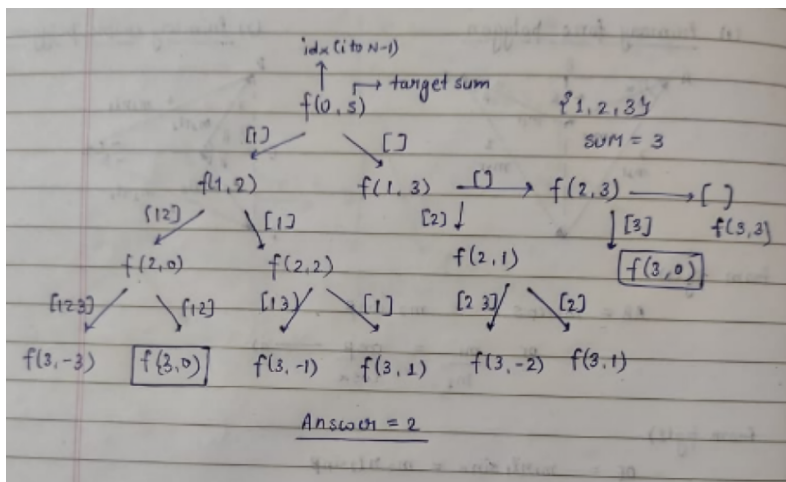 idx (i to N-1)
→ target sum
f(0, s) {1, 2, 3}
[1] [ ] SUM = 3
f(1, 2) f(1, 3) [ ] f(2, 3) → [ ]
[12] [1] [2] [3] f(3, 3)
f(2, 0) f(2, 2) f(2, 1) f(3, 0)
[123] [12] [13] [1] [2 3] [2]
f(3, -3) f(3, 0) f(3, -1) f(3, 1) f(3, -2) f(3, 1)
Answer = 2